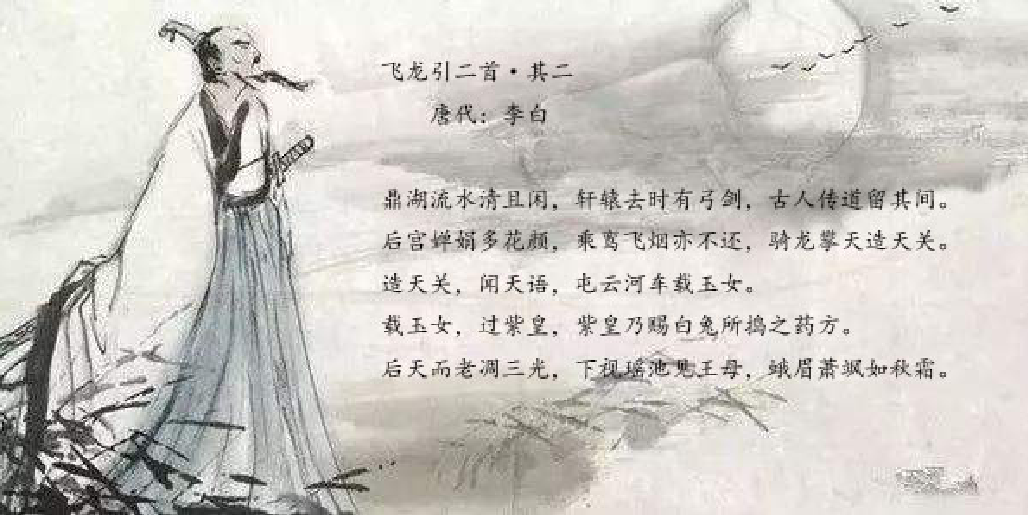 飞龙引二首·其二
唐代：李白
鼎湖流水清且闲，轩辕去时有弓剑，古人传道留其间。
后宫婵娟多花颜，乘鸾飞烟亦不还，骑龙攀天造天关。
造天关，闻天语，屯云河车载玉女。
载玉女，过紫皇，紫皇乃赐白兔所捣之药方。
后天而老凋三光，下视瑶池见王母，蛾眉萧飒如秋霜。